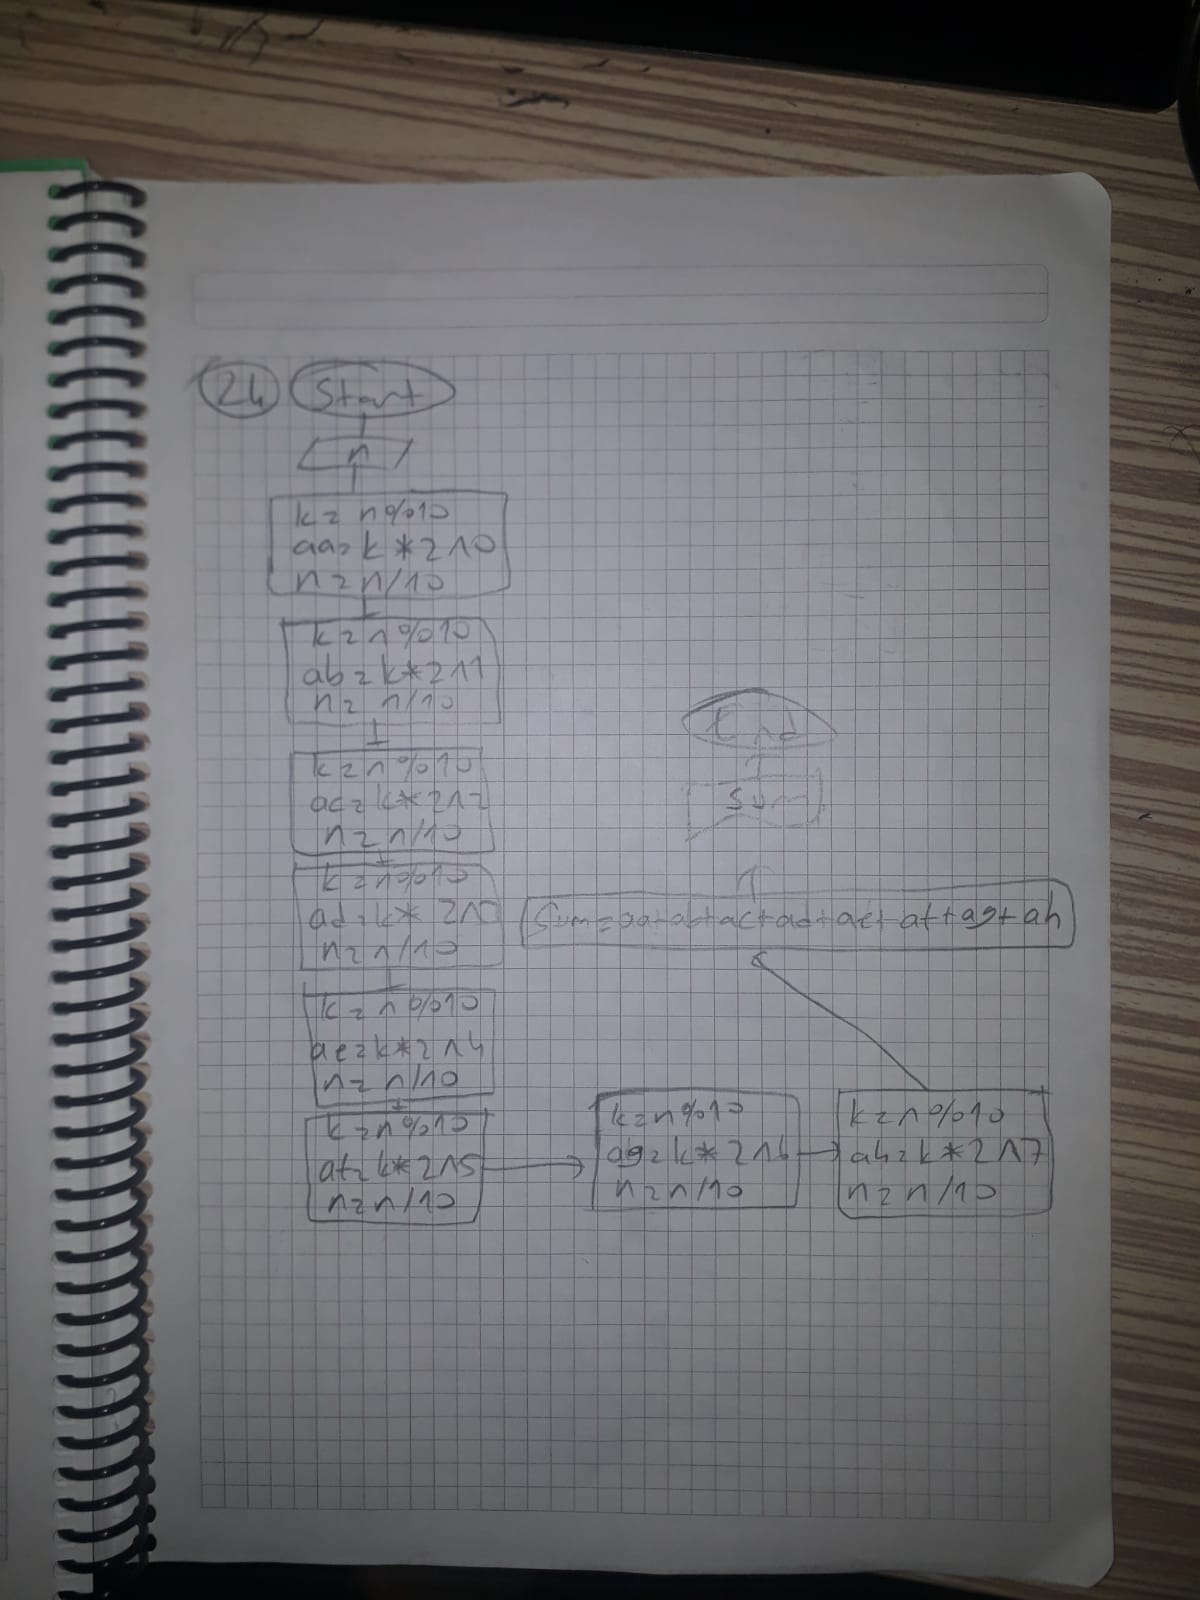 24 Start
n
k = n%10
aa = k * 2^0
n = n/10
k = n%10
ab = k * 2^1
n = n/10
k = n%10
ac = k * 2^2
n = n/10
k = n%10
ad = k *
n = n/10
k = n%10
ae = k * 2^4
n = n/10
k = n%10
af = k * 2^5
n = n/10
k = n%10
ag = k * 2^6
n = n/10
k = n%10
ah = k * 2^7
n = n/10
Sum = aa + ab + ac + ad + ae + af + ag + ah
Sum
End